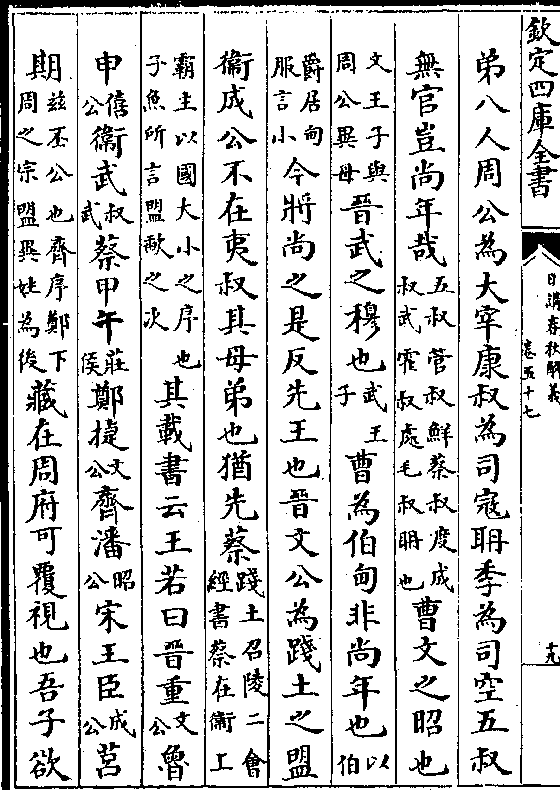 欽定四庫全書
日講春秋解義
卷五十七
十九
弟八人周公為大宰康叔為司寇聃季為司空五叔
無官豈尚年哉五叔管叔鮮蔡叔度成叔武霍叔處毛叔聃也曹文之昭也
文王子與周公異母晉武之穆也武王子曹為伯甸非尚年也以伯
爵居甸服言小今將尚之是反先王也晉文公為踐土之盟
衞成公不在夷叔其母弟也猶先蔡踐土召陵二會經書蔡在衞上
霸主以國大小之序也子魚所言盟歃之次其載書云王若曰晉重文公魯
申僖公衞武叔武蔡甲午莊侯鄭捷文公齊潘昭公宋王臣成公莒
期兹丕公也齊序鄭下周之宗盟異姓為後藏在周府可覆視也吾子欲